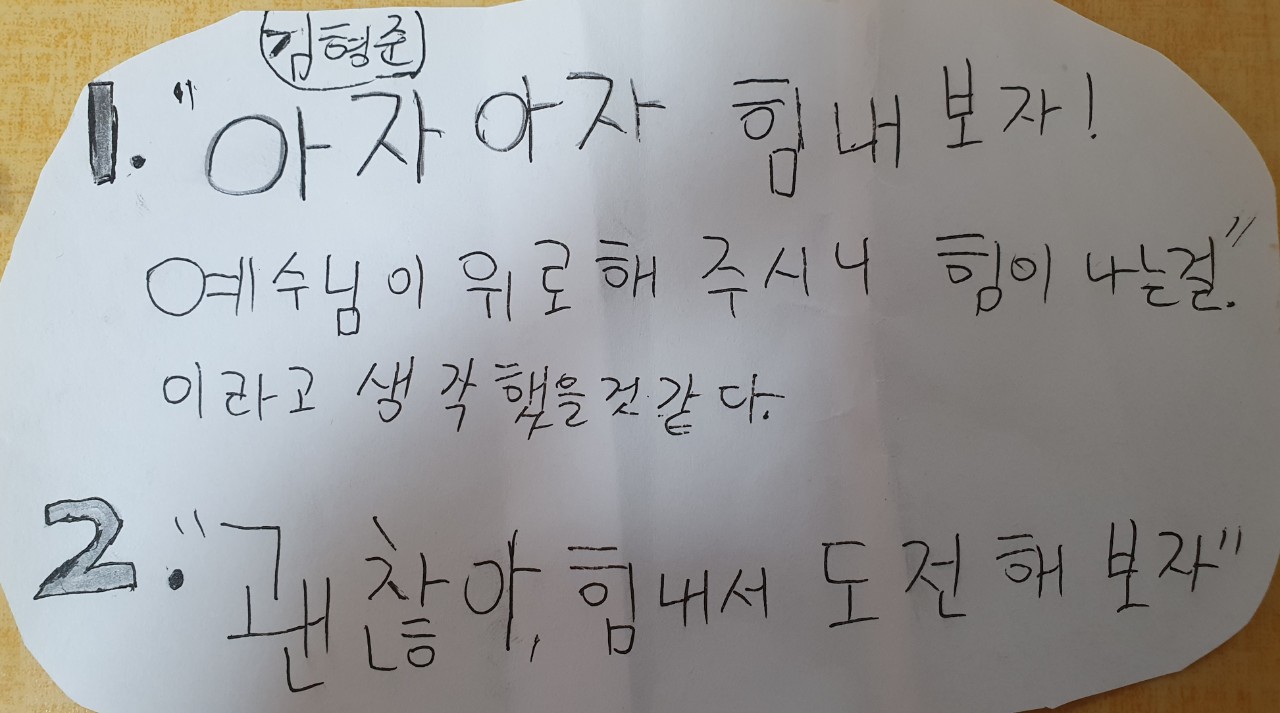 김형준
1. "아자아자 힘내보자!
예수님이 위로해 주시니 힘이 나는걸."
이라고 생각했을것 같다.
2. "괜찮아, 힘내서 도전해보자"